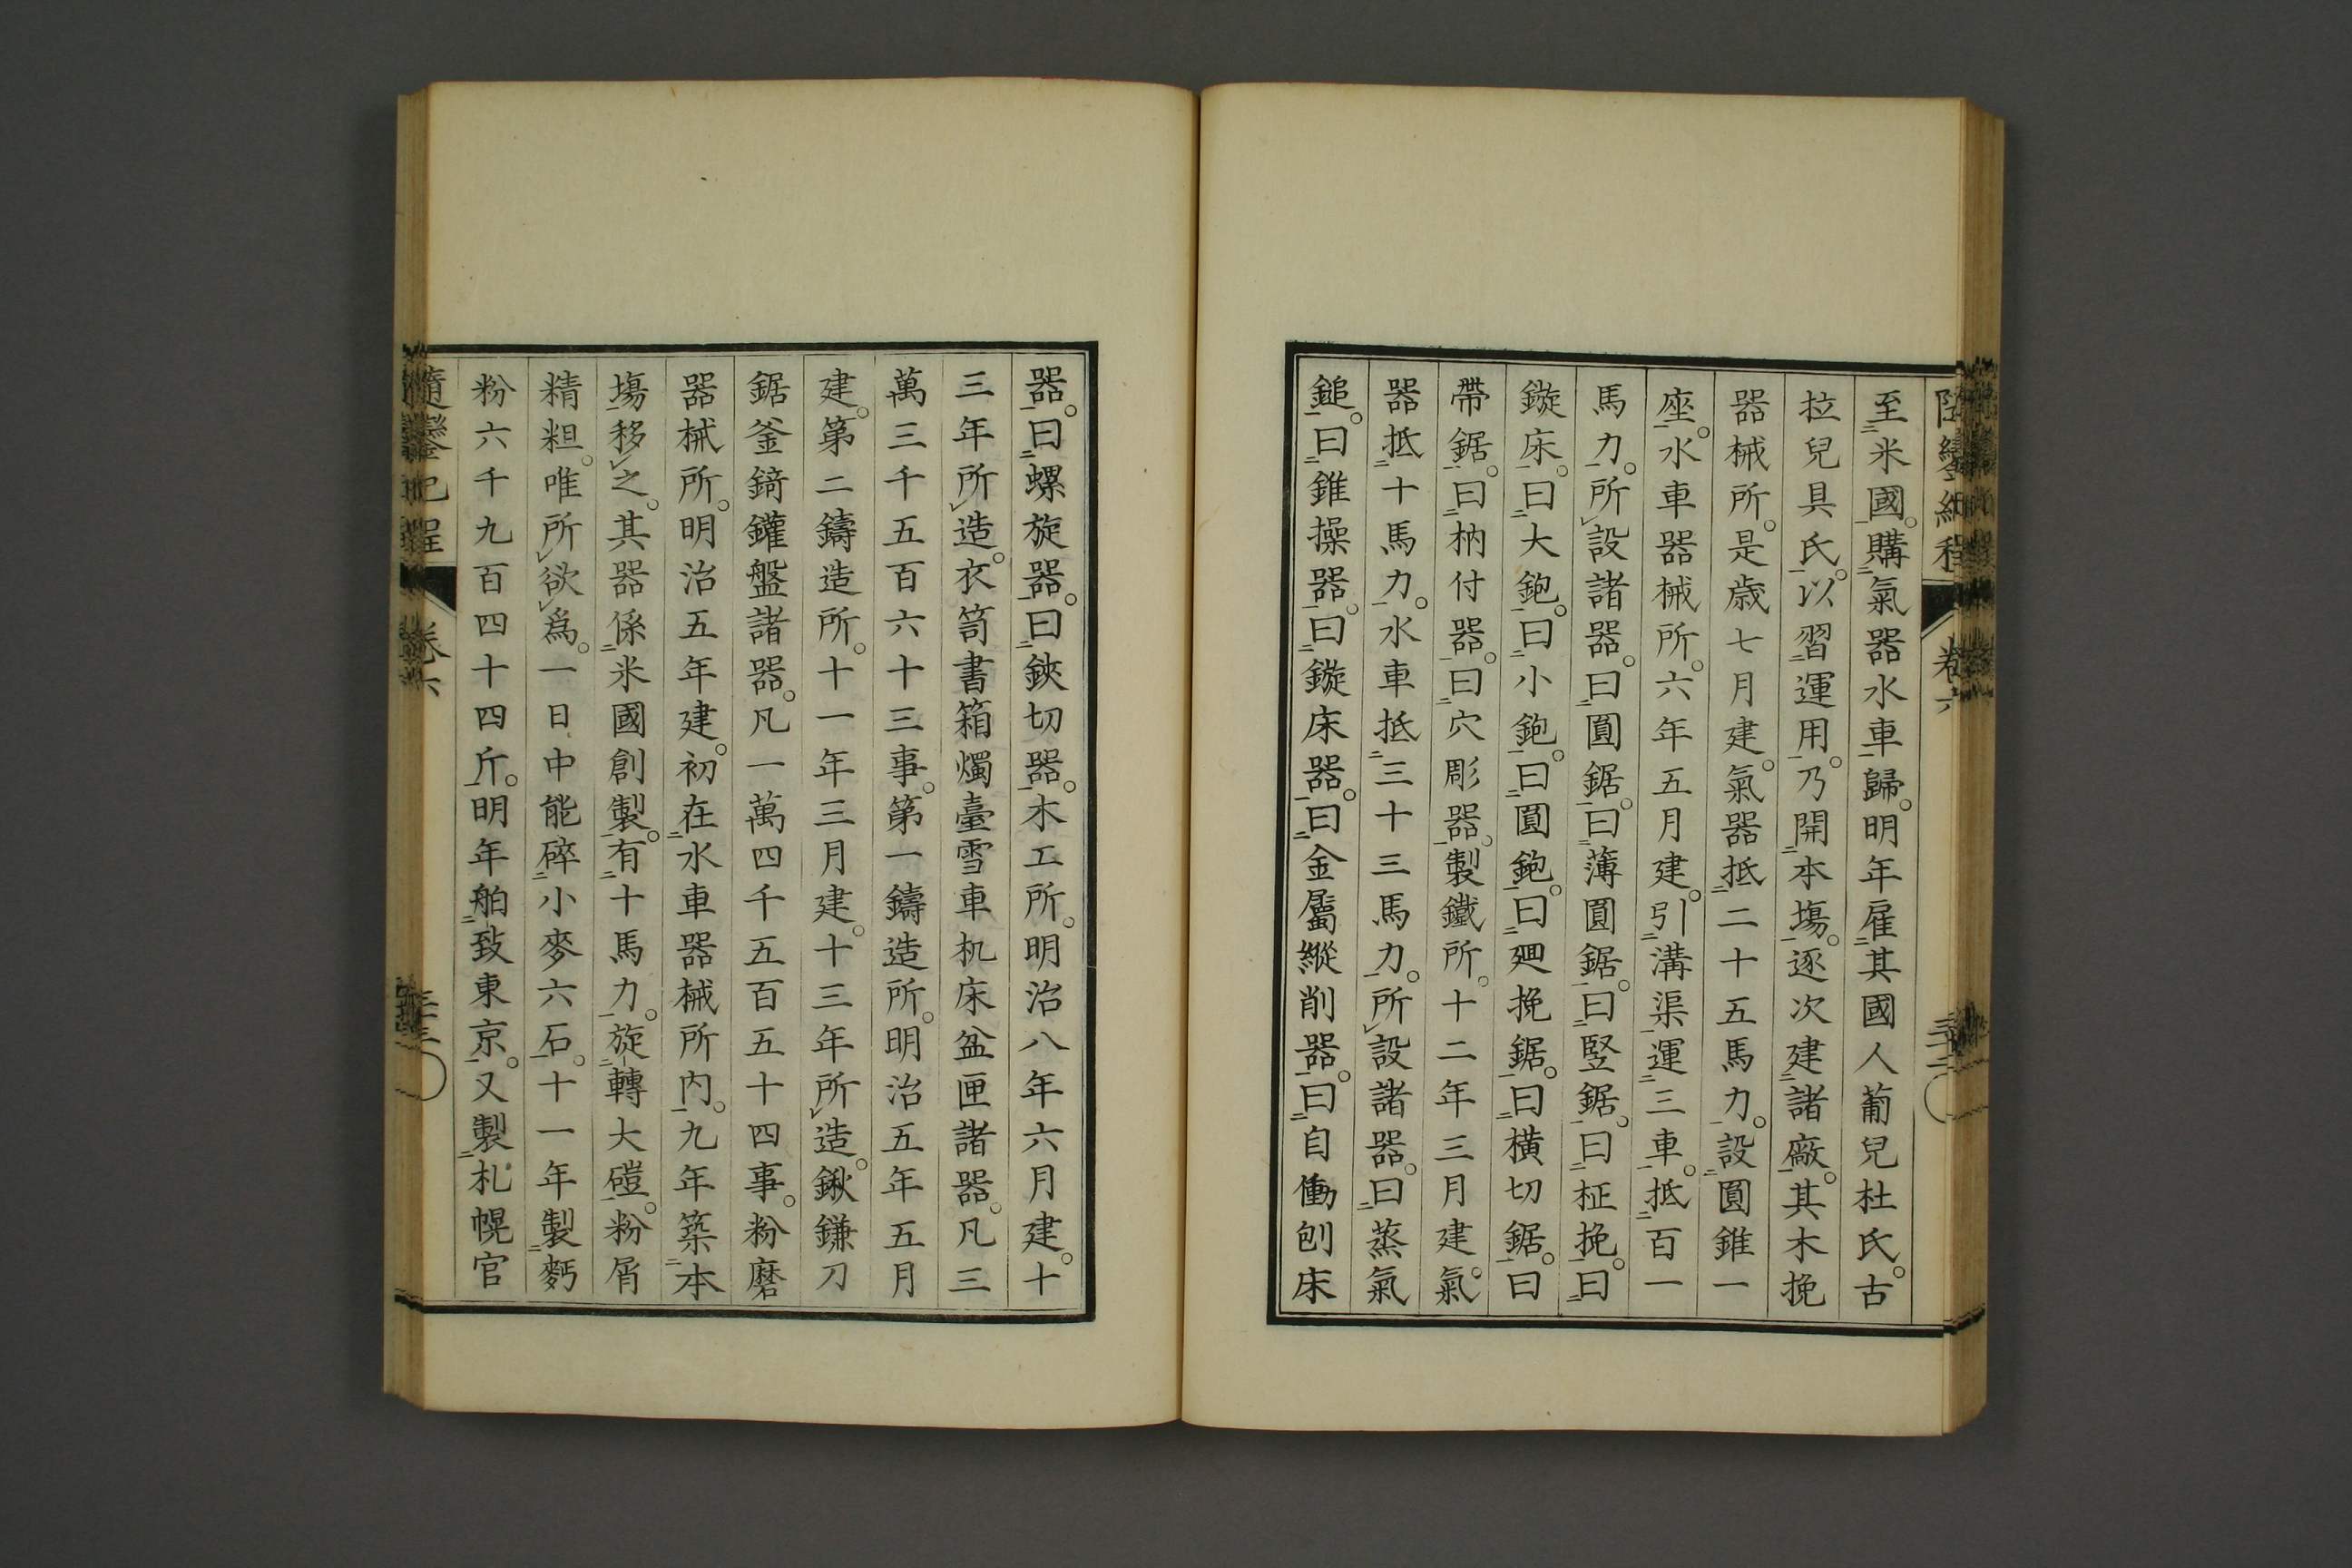 至米國。購氣器水車歸。明年雇其國人葡兒杜氏。古
拉兒具氏。以習運用。乃開本場。逐次建諸廠。其木挽
器械所。是歲七月建。氣器抵二十五馬力。設圓錐一
座。水車器械所。六年五月建。引溝渠運三車。抵百一
馬力。所設諸器。曰圓鋸。曰薄圓鋸。曰竪鋸。曰柾挽。曰
鏇床。曰大鉋。曰小鉋。曰圓鉋。曰廽挽鋸。曰橫切鋸。曰
帶鋸。曰枘付器。曰穴彫器。製鐵所。十二年三月建。氣
器抵十馬力。水車抵三十三馬力。所設諸器。曰蒸氣
鎚。曰錐操器。曰鏇床器。曰金屬縱削器。曰自働刨床
器。曰螺旋器。曰鋏切器。木工所。明治八年六月建。十
三年所造。衣笥書箱燭臺雪車机床盆匣諸器。凡三
萬三千五百六十三事。第一鑄造所。明治五年五月
建。第二鑄造所。十一年三月建。十三年所造。鍬鎌刀
鋸釜錡鑵盤諸器。凡一萬四千五百五十四事。粉磨
器械所。明治五年建。初在水車器械所内。九年築本
場移之。其器係米國創製。有十馬力。旋轉大磑。粉屑
精粗。唯所欲爲。一日中能碎小麥六石。十一年製麪
粉六千九百四十四斤。明年舶致東京。又製札幌官
隨鑾紀程 卷六